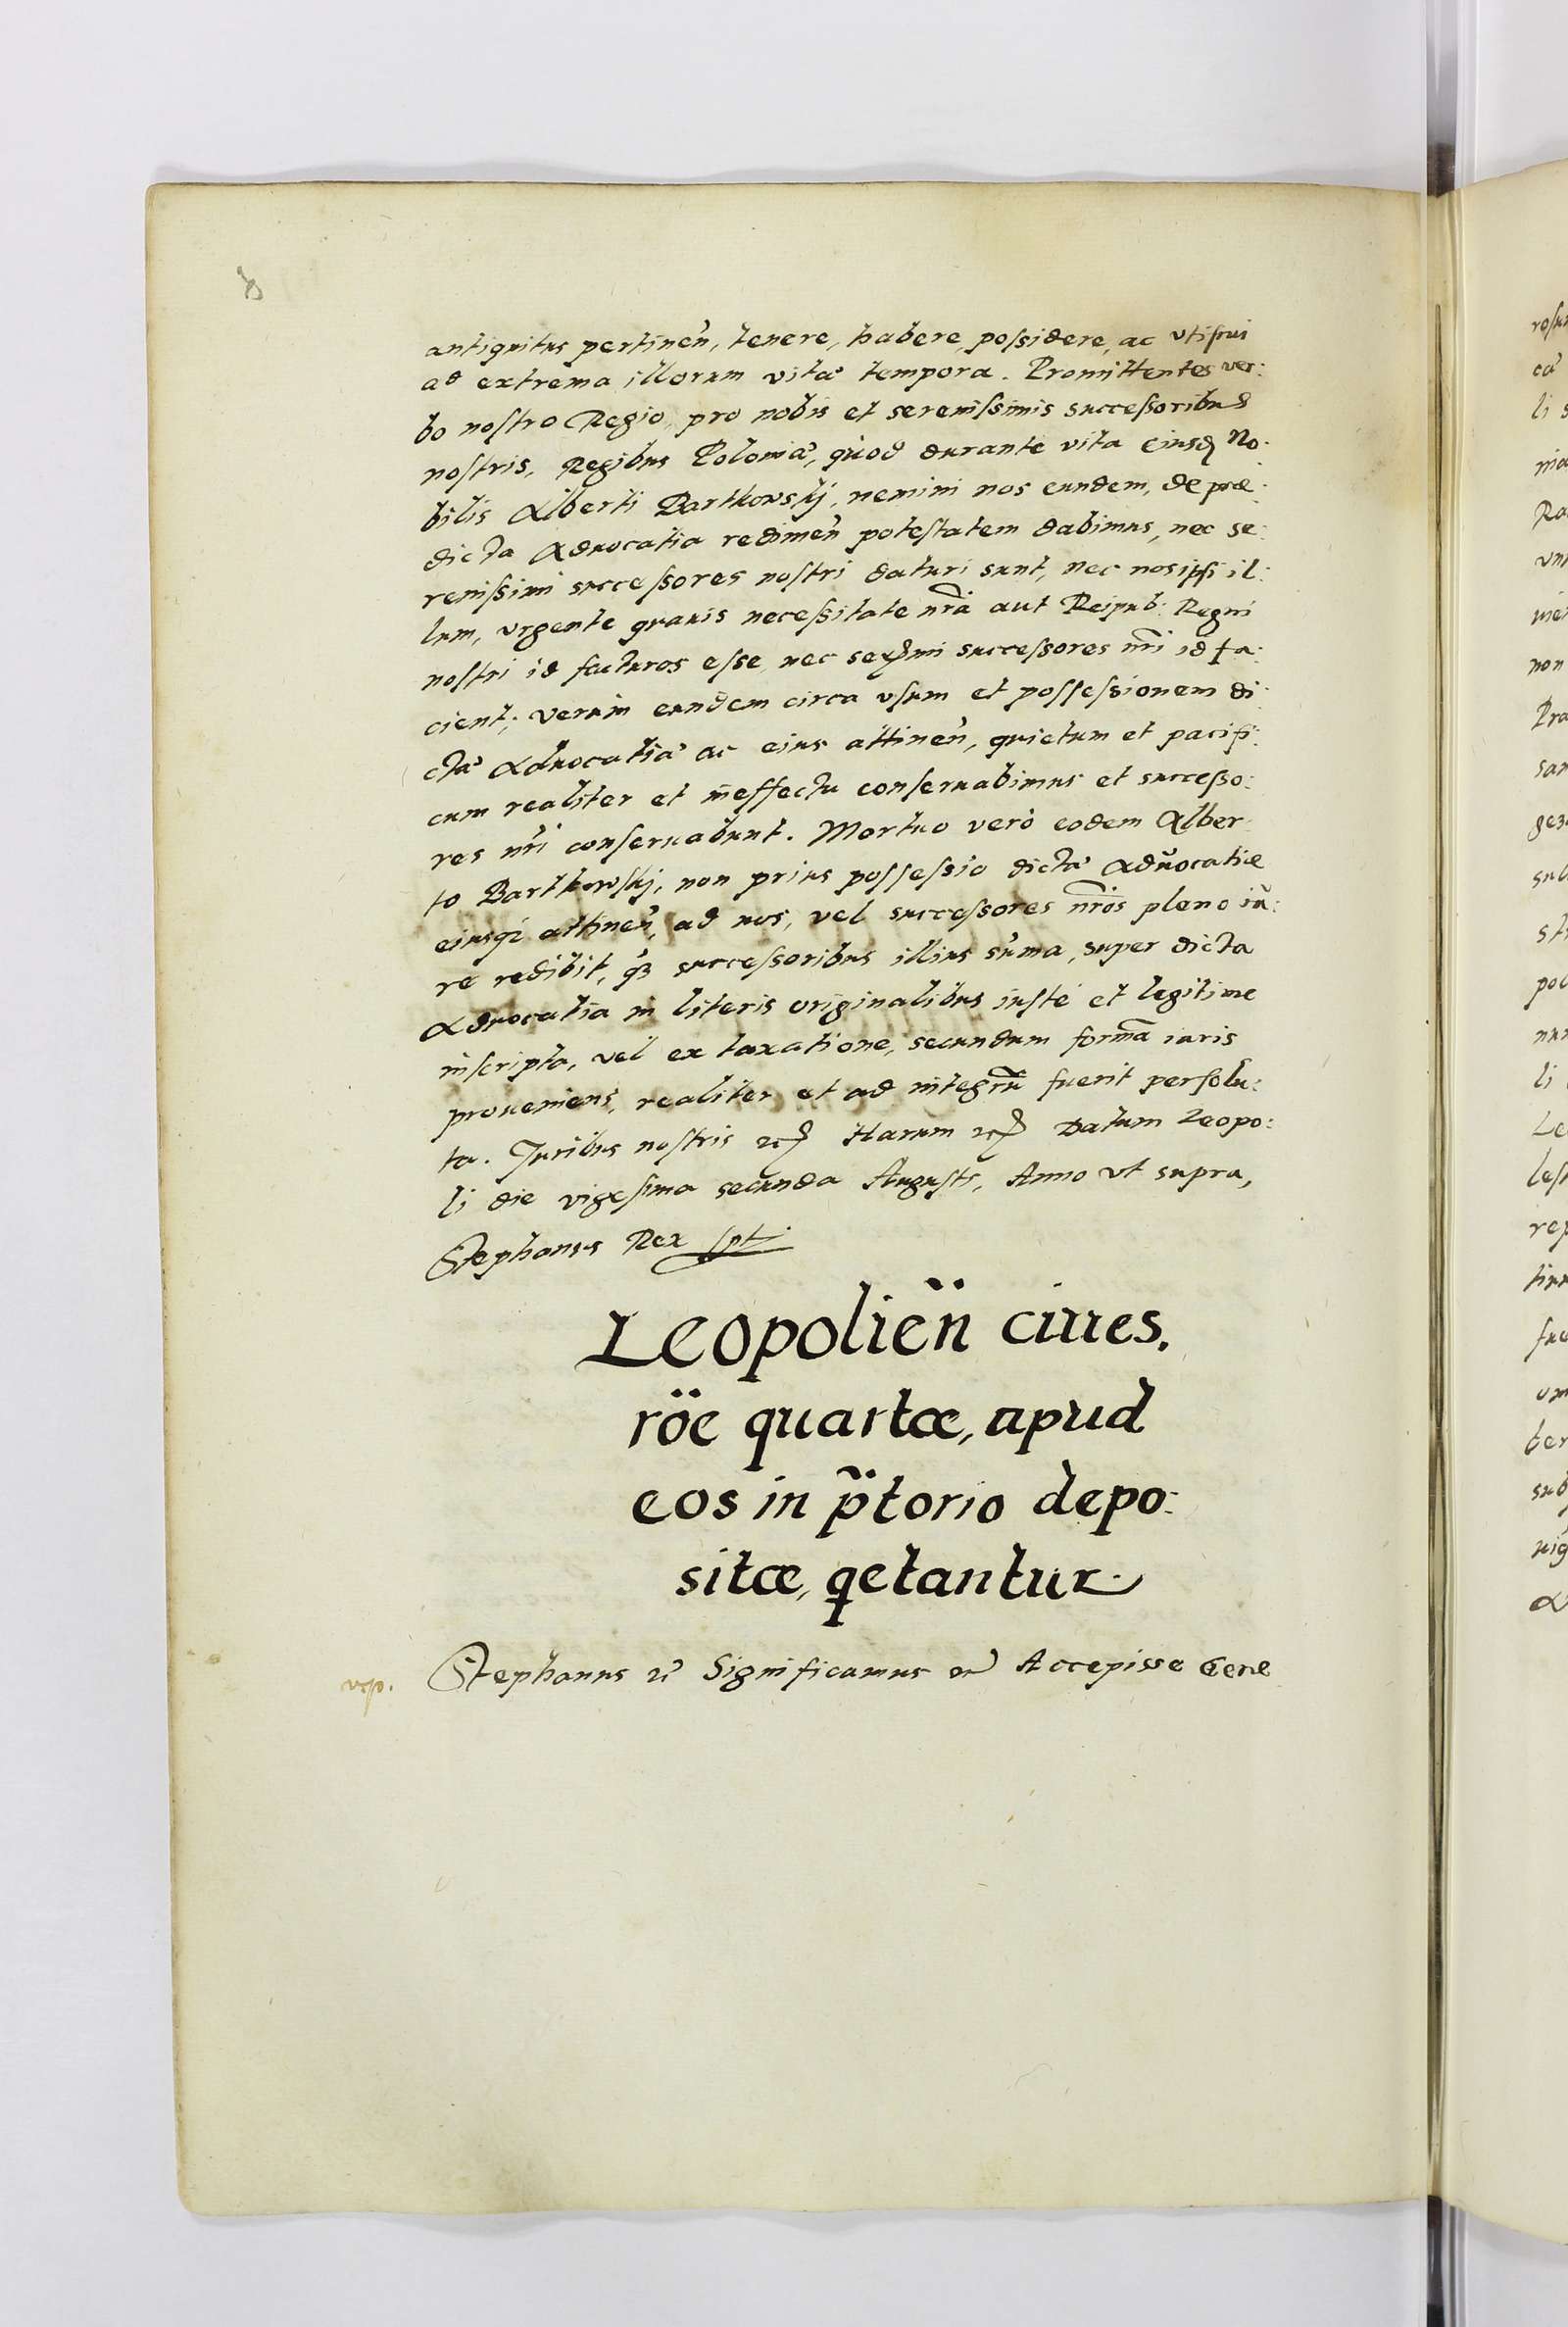 antiquitus pertineñ, tenere, habere, possidere, ac vtifrui
ad extrema illorum vitæ tempora. Promittentes ver:
bo nostro Regio, pro nobis et serenissimis successoribus
nostris, Regibus Poloniæ, quod durante vita eiusd No:
bilis Alberti Bartkowskj, nemini nos eundem, de præ:
dicta Aduocatia redimeñ potestatem dabimus, nec se:
renissimi successores nostri daturi sunt, nec nos ipsi il:
lum, vrgente quauis necessitate nrã aut Reipub: Regni
nostri id facturos esse, nec serẽmi successores nri id fa:
cient; verum eundem circa vsum et possessionem di:
ctæ Aduocatiæ ac eius attineñ, quietum et pacifi:
cum realiter et in effectu conseruabimus et successo:
res nri conseruabunt. Mortuo verò eodem Alber:
to Bartkowskj, non prius possessio dictæ Aduocatiæ
eiusq attineñ, ad nos, vel successores nros pleno iu:
re redibit, q̃ successoribus illius sũma, super dicta
Aduocatia in literis originalibus iustè et legitime
inscripta, vel ex taxatione, secundum formã iuris
proueniens, realiter et ad integrũ fuerit persolu:
ta. Juribus nostris etc Harum etc Datum Leopo:
li die vigesima secunda Augusti, Anno vt supra,
Stephanus Rex spt
Leopolieñ ciues.
rõe quartæ, apud
eos in p̃torio depo:
sitæ, qetantur
Stephanus etc Significamus etc Accepisse Gene